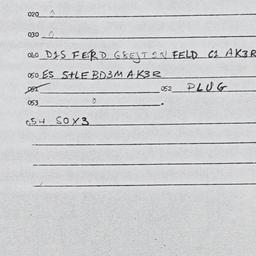 020
030
040 D1S FERD GSEJT ON FELD C1 AK3R
050 ES STLEBD3M AK3R
051 052 PLUG
053
054 SOX3